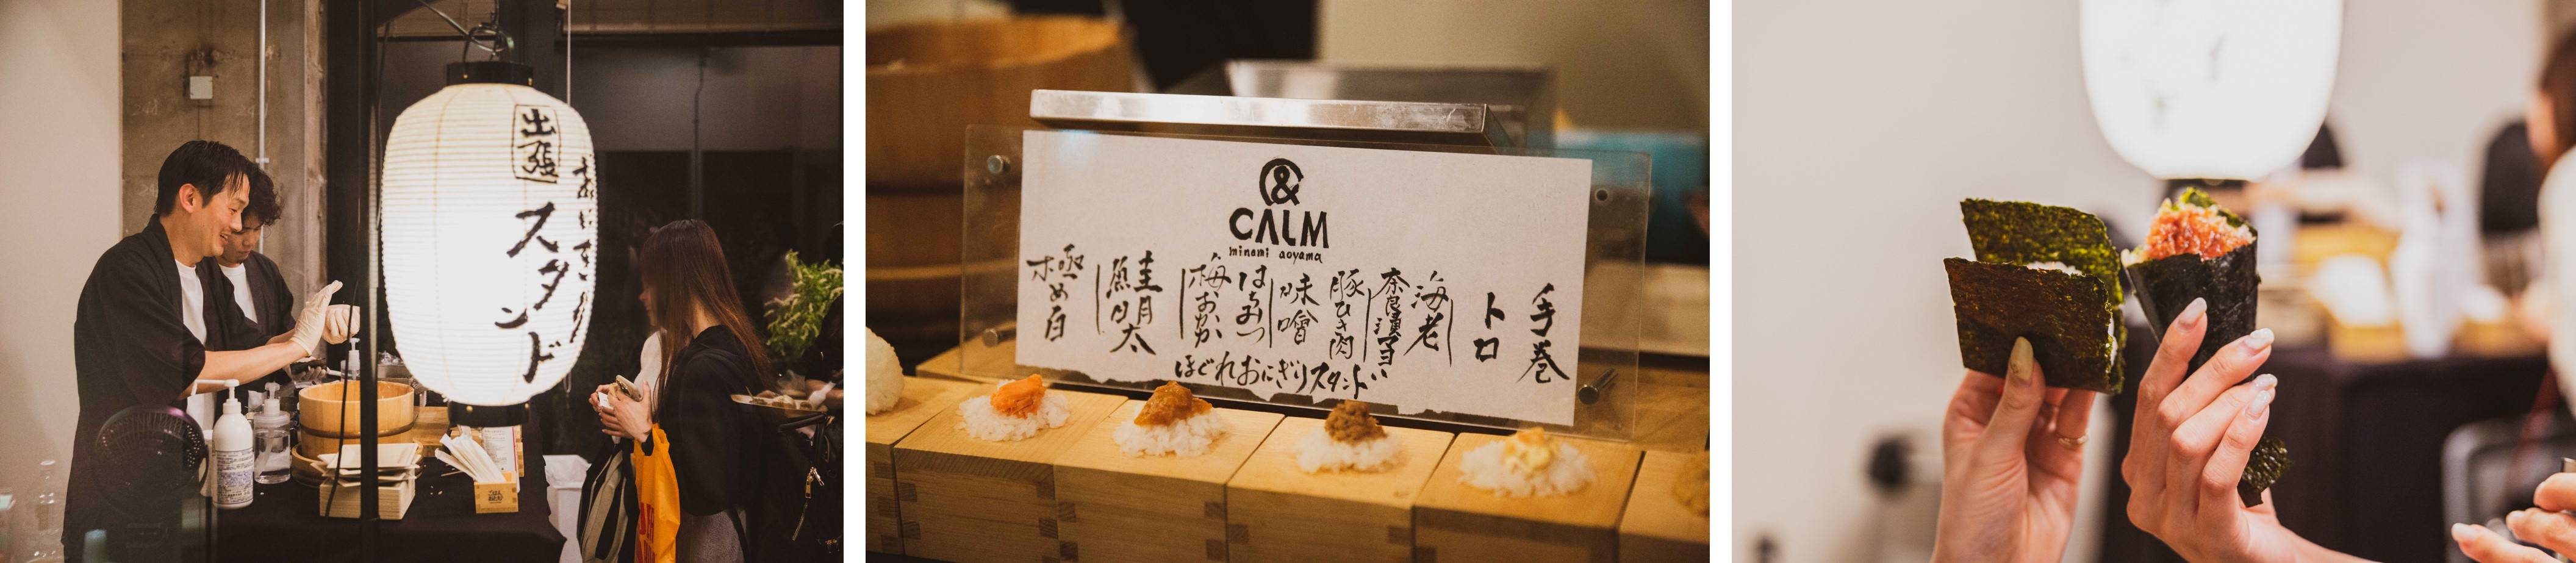 出張
おにぎり
スタンド
& CALM
minami aoyama
手巻
トロ
海老
奈良漬マヨ
豚ひき肉
味噌
はちみつ
梅おかか
鮭明太
極め白
ほぐれおにぎりスタンド